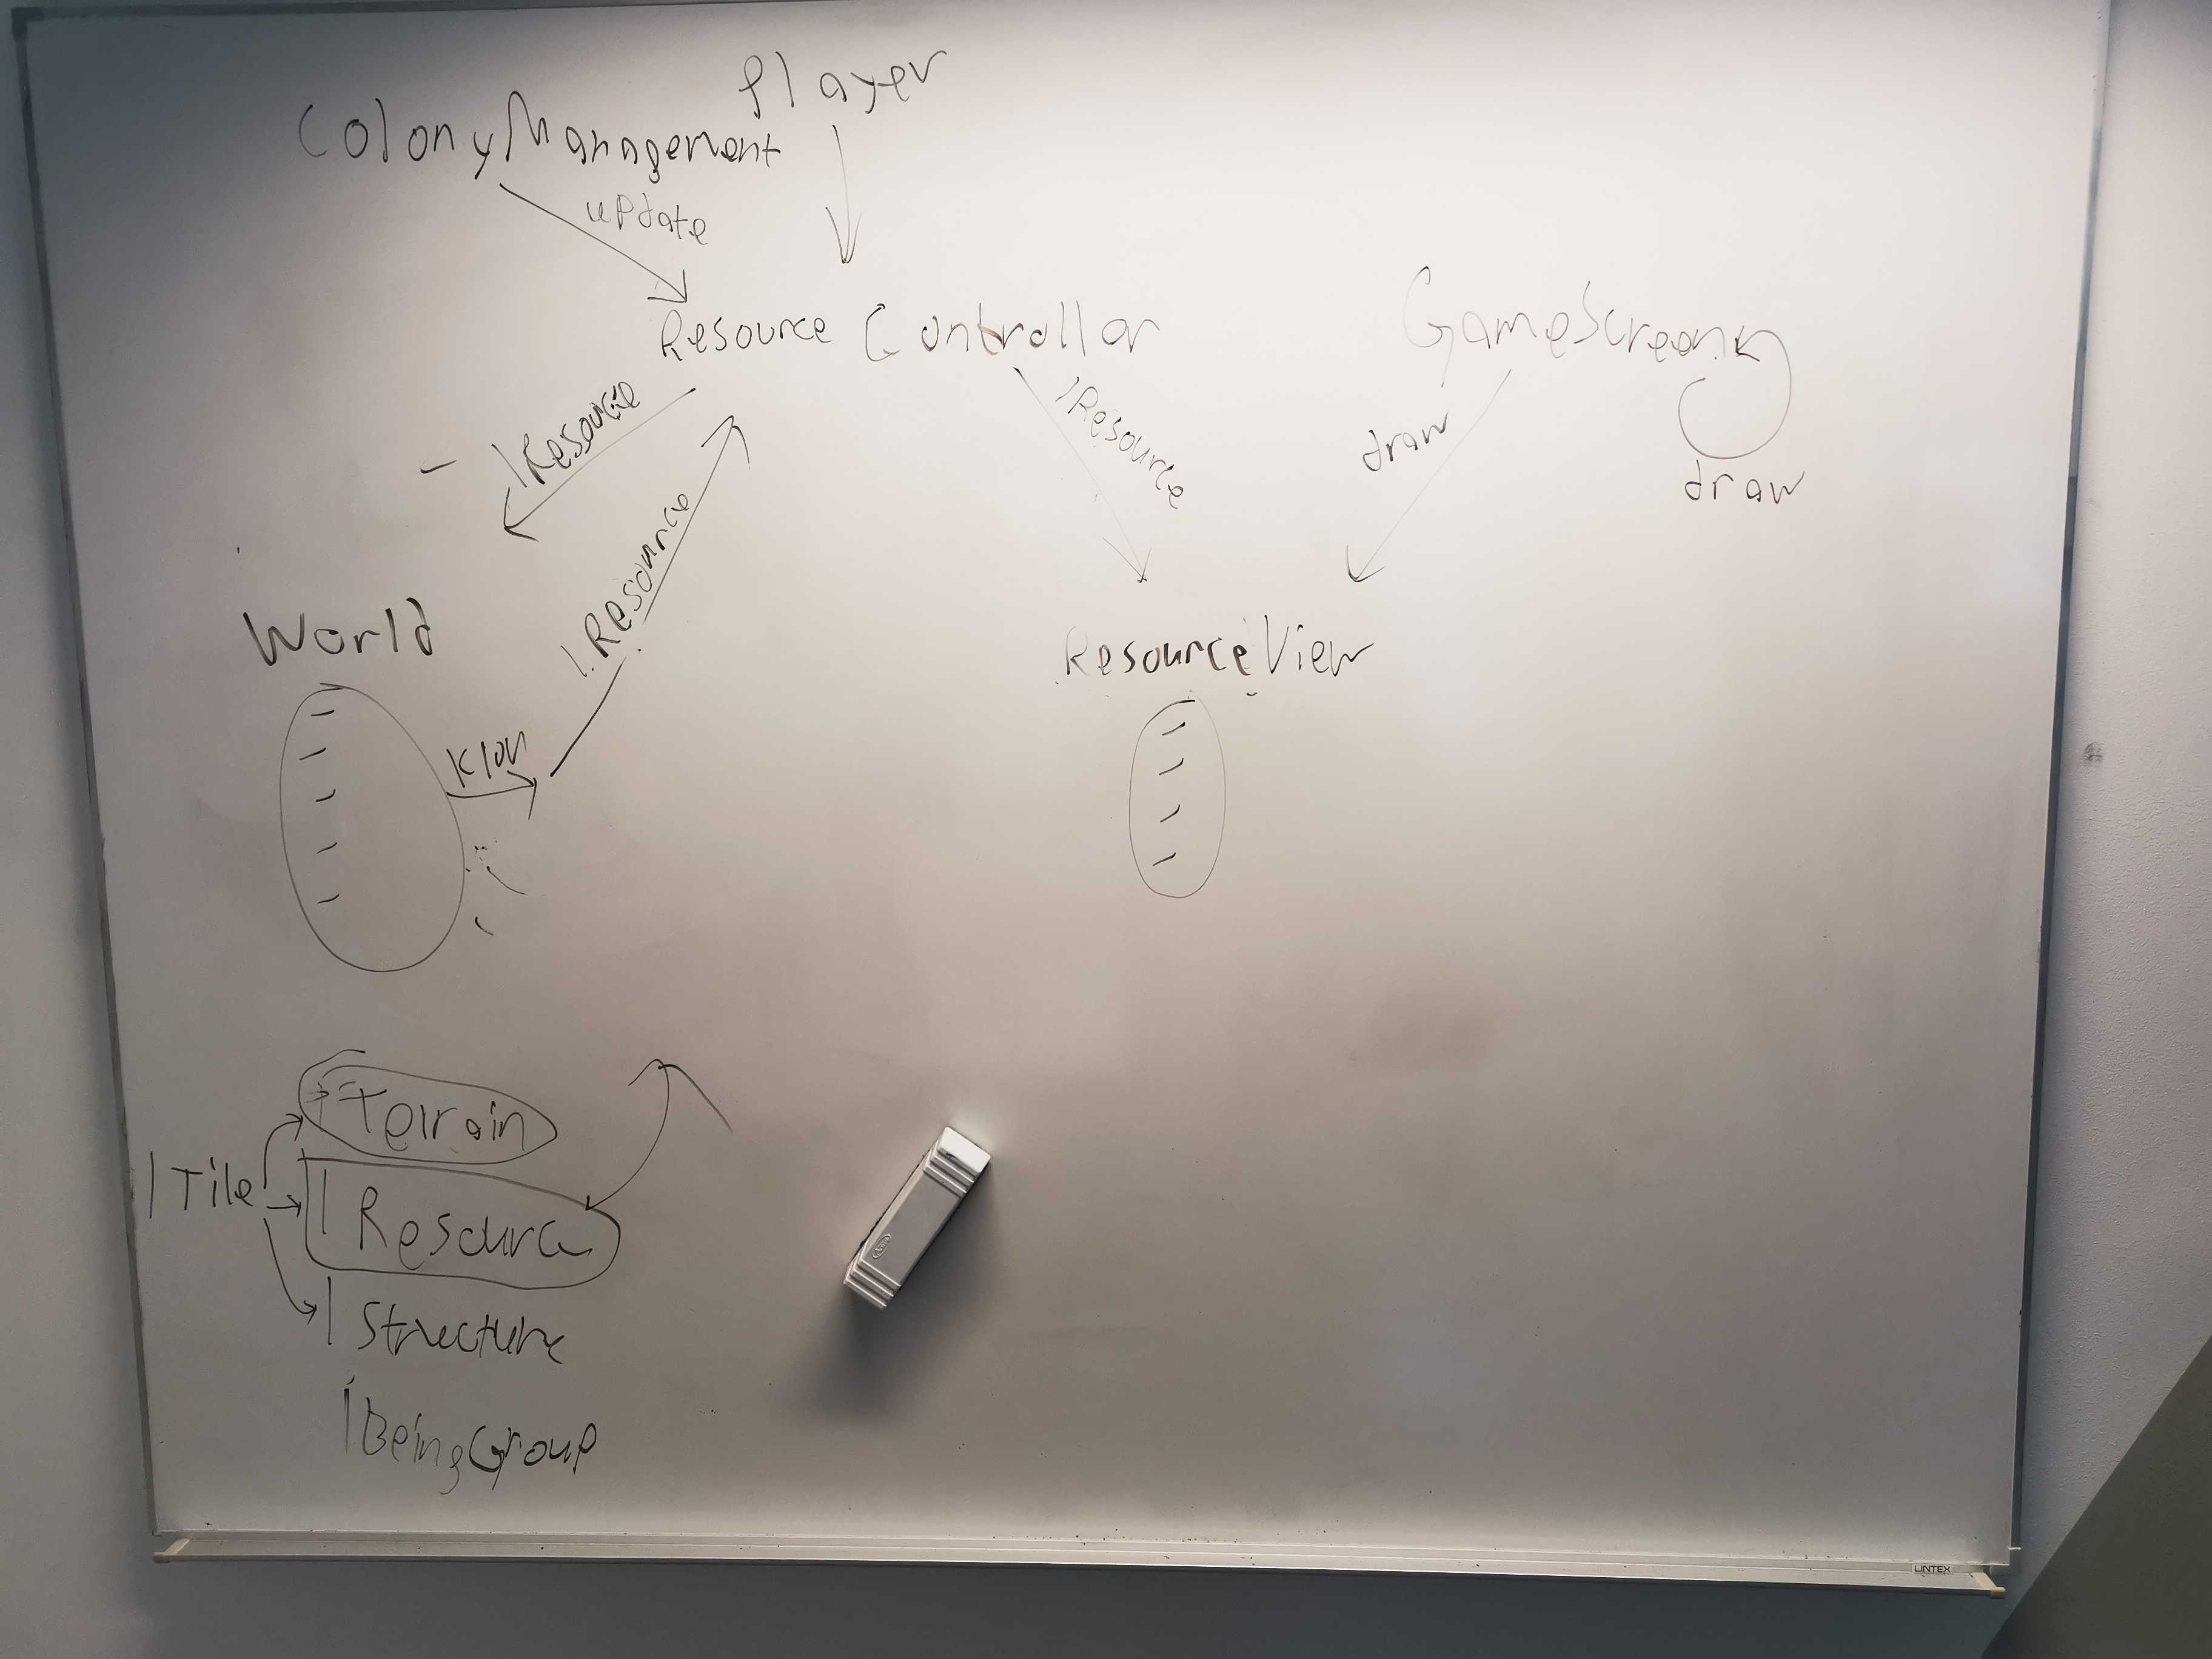 Player
ColonyManagement
update
Resource Controller
GameScreen
IResource
IResource
draw
draw
IResource
World
ResourceView
Klon
ITerrain
ITile
IResource
IStructure
IBeingGroup
LINTEX